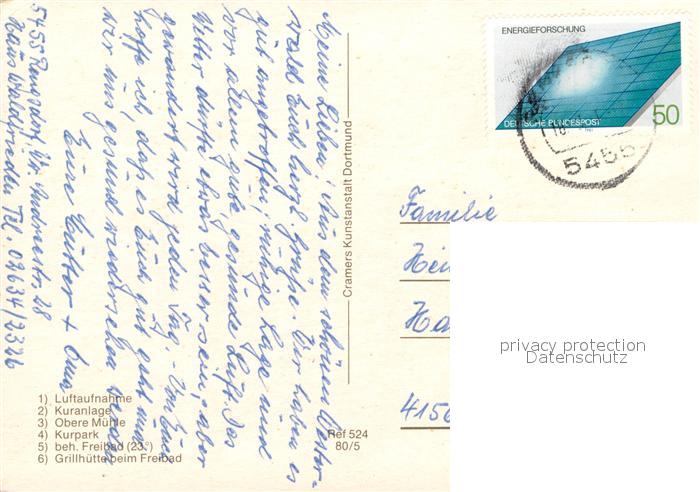 Meine Lieben! Aus dem schönen Wester-
wald Euch herzl. Grüße. Wir haben es
gut angetroffen, ruhige Lage und
vor allem gute, gesunde Luft. Das
Wetter dürfte etwas besser sein, aber
gewandert wird jeden Tag. - Von Euch
hoffe ich, daß es Euch gut geht und
wir uns gesund wiedersehen werden
Eure Mutter + Oma
5455 Rengsdorf, Andreestr. 28
Haus Waldfrieden Tel. 02634/2326
Cramers Kunstanstalt Dortmund
1) Luftaufnahme
2) Kuranlage
3) Obere Mühle
4) Kurpark
5) beh. Freibad (23°)
6) Grillhütte beim Freibad
Ref 524
80/5
ENERGIEFORSCHUNG
DEUTSCHE BUNDESPOST
50
5455
Familie
Hei
Ha
4150
privacy protection
Datenschutz